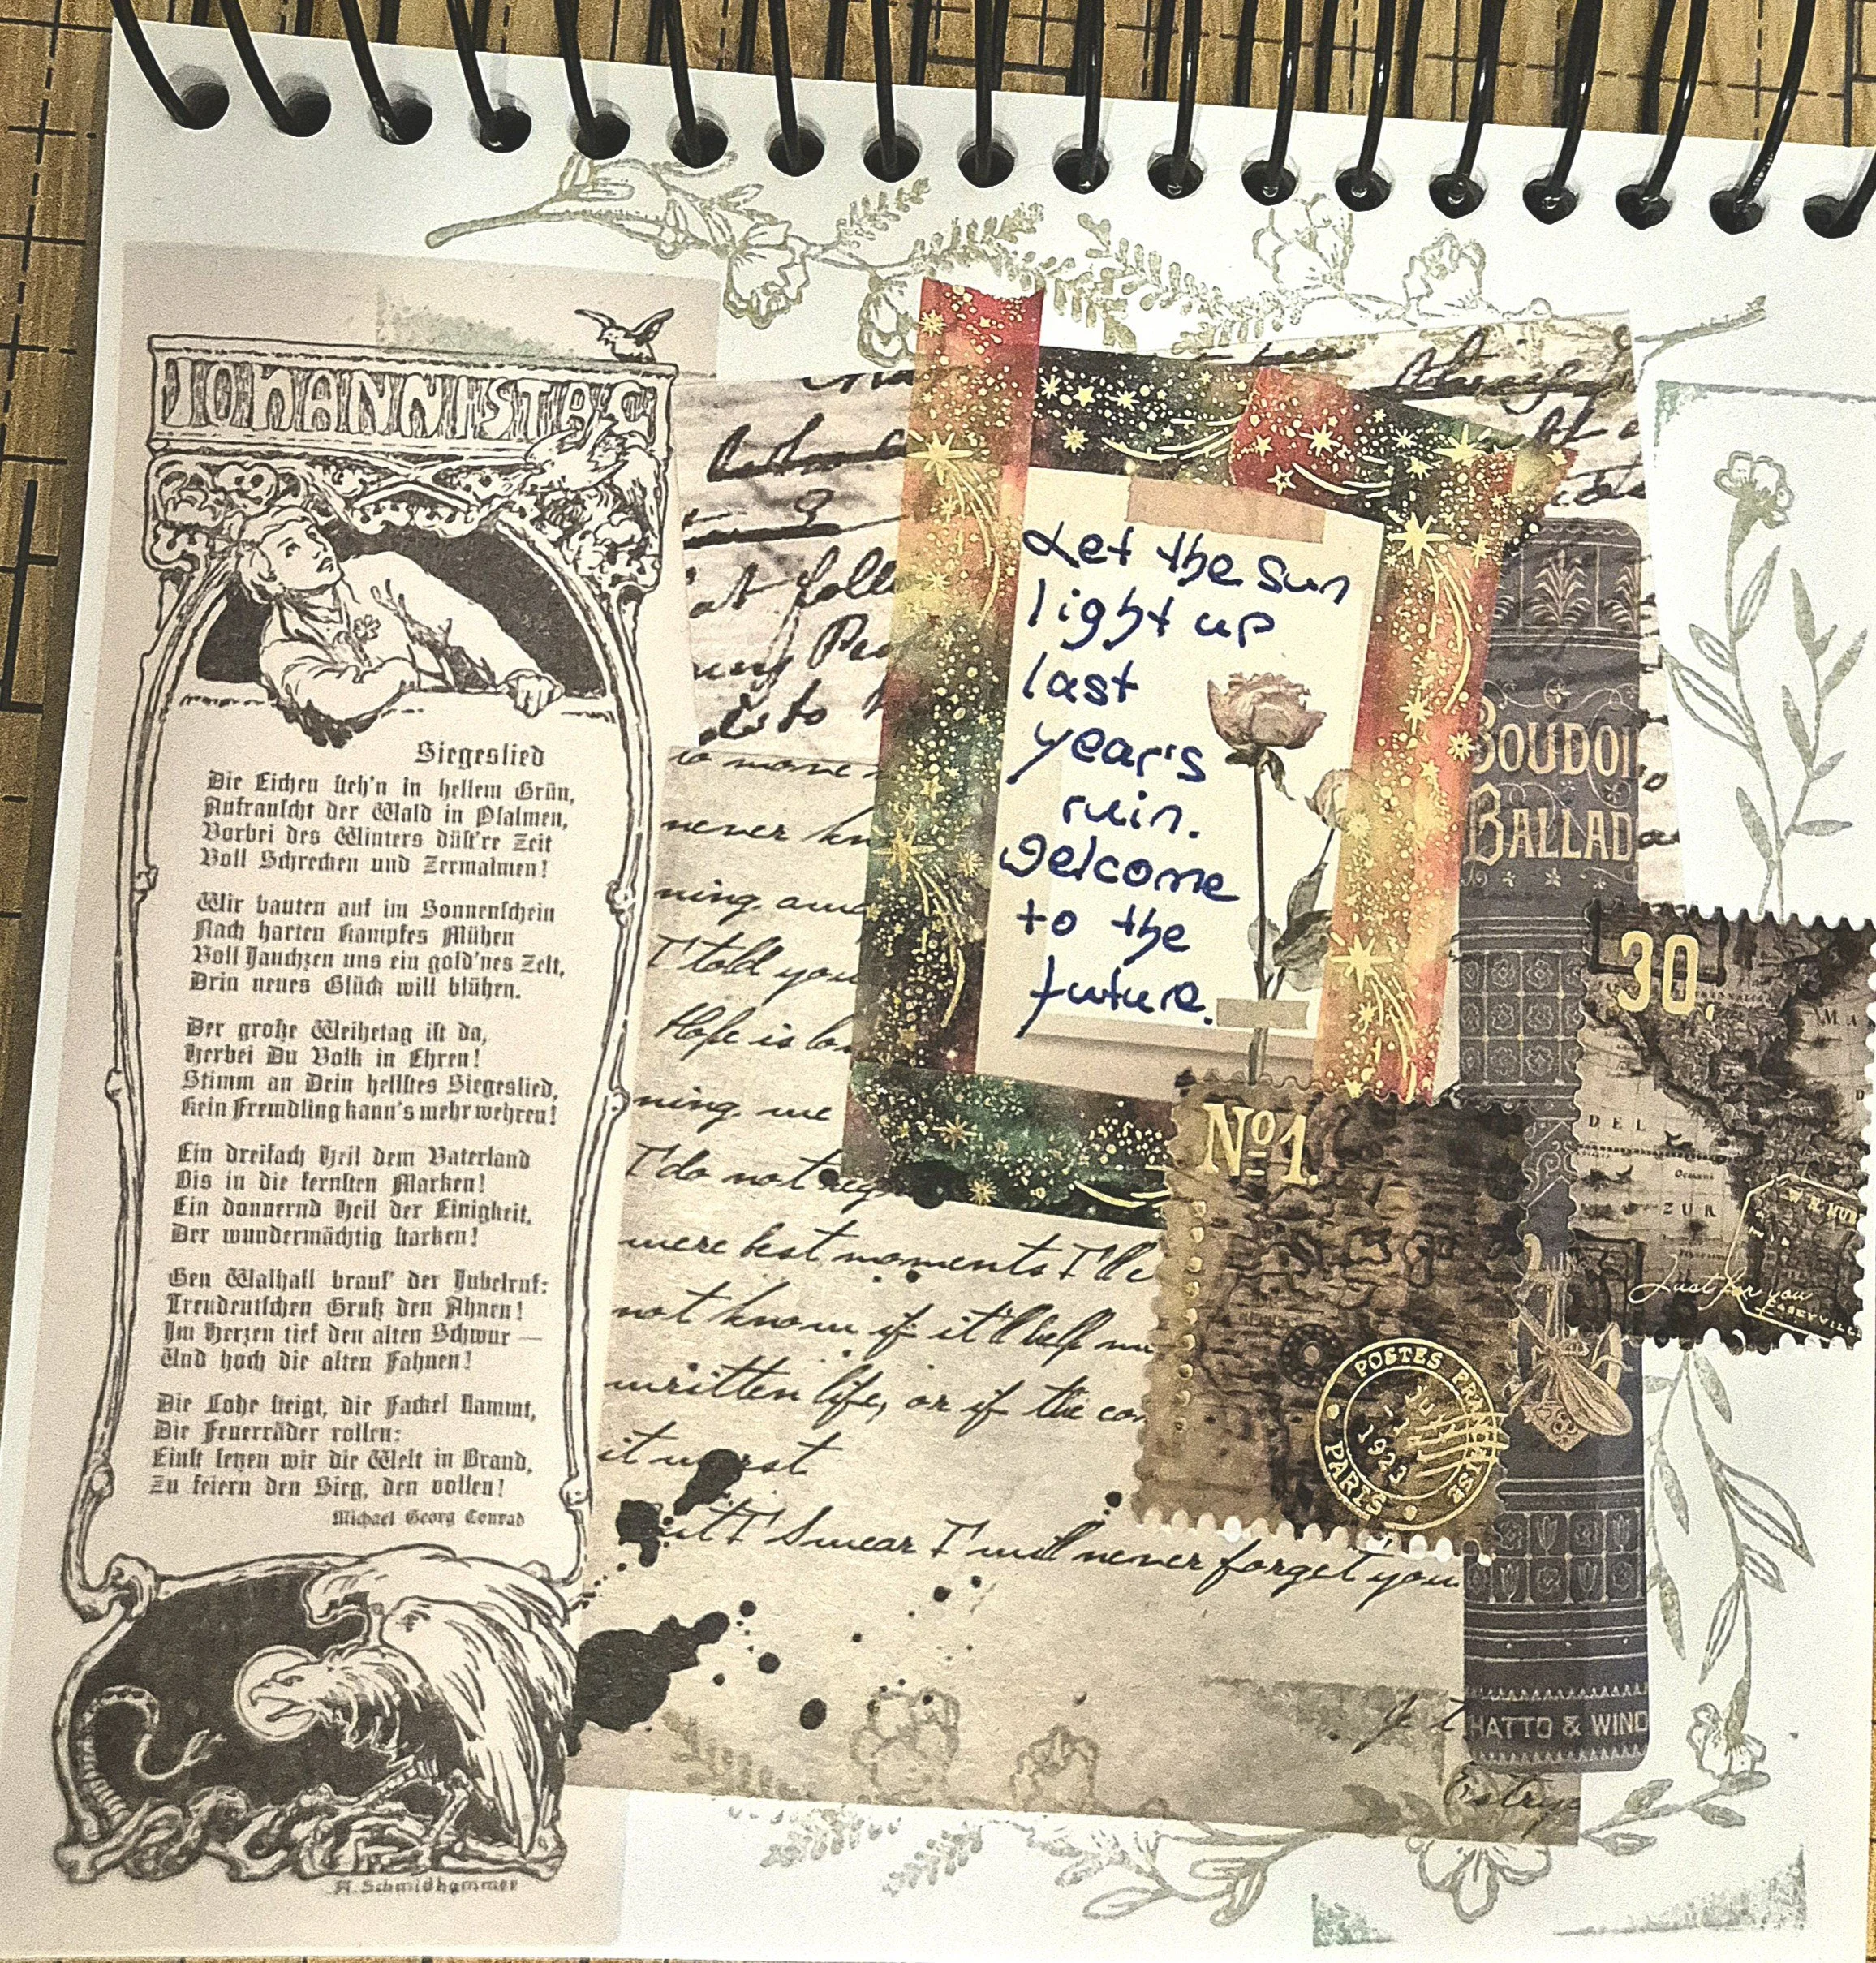 JOHANNISTAG
Siegeslied
Die Eichen steh'n in hellem Grün,
Aufrauscht der Wald in Psalmen,
Vorbei des Winters düst're Zeit
Voll Schrecken und Zermalmen!
Wir bauten auf im Sonnenschein
Nach harten Kampfes Mühen
Voll Jauchzen uns ein gold'nes Zelt,
Drin neues Glück will blühen.
Der große Weihetag ist da,
Herbei Du Volk in Ehren!
Stimm an Dein hellstes Siegeslied,
Kein Fremdling kann's mehr wehren!
Ein dreifach Heil dem Vaterland
Bis in die fernsten Marken!
Ein donnernd Heil der Einigkeit,
Der wundermächtig starken!
Gen Walhall braus' der Jubelruf:
Treudeutschen Gruß den Ahnen!
Im Herzen tief den alten Schwur —
Und hoch die alten Fahnen!
Die Lohe steigt, die Fackel flammt,
Die Feuerräder rollen:
Einst setzen wir die Welt in Brand,
Zu feiern den Sieg, den vollen!
Michael Georg Conrad
A. Schmidhammer
Let the sun
light up
last
year's
ruin.
Welcome
to the
future.
at foll
is to
never kn
ning, 
I told you
Hope is lo
ning, me
I do not reg
were best moments I'll
not know if it'll help m
written life, or if the co
it worst
but I swear I will never forget you
BOUDOI
BALLAD
HATTO & WIND
No1.
POSTES FRANÇAISE
1923
PARIS
30.
DEL
ZUR
Just for you